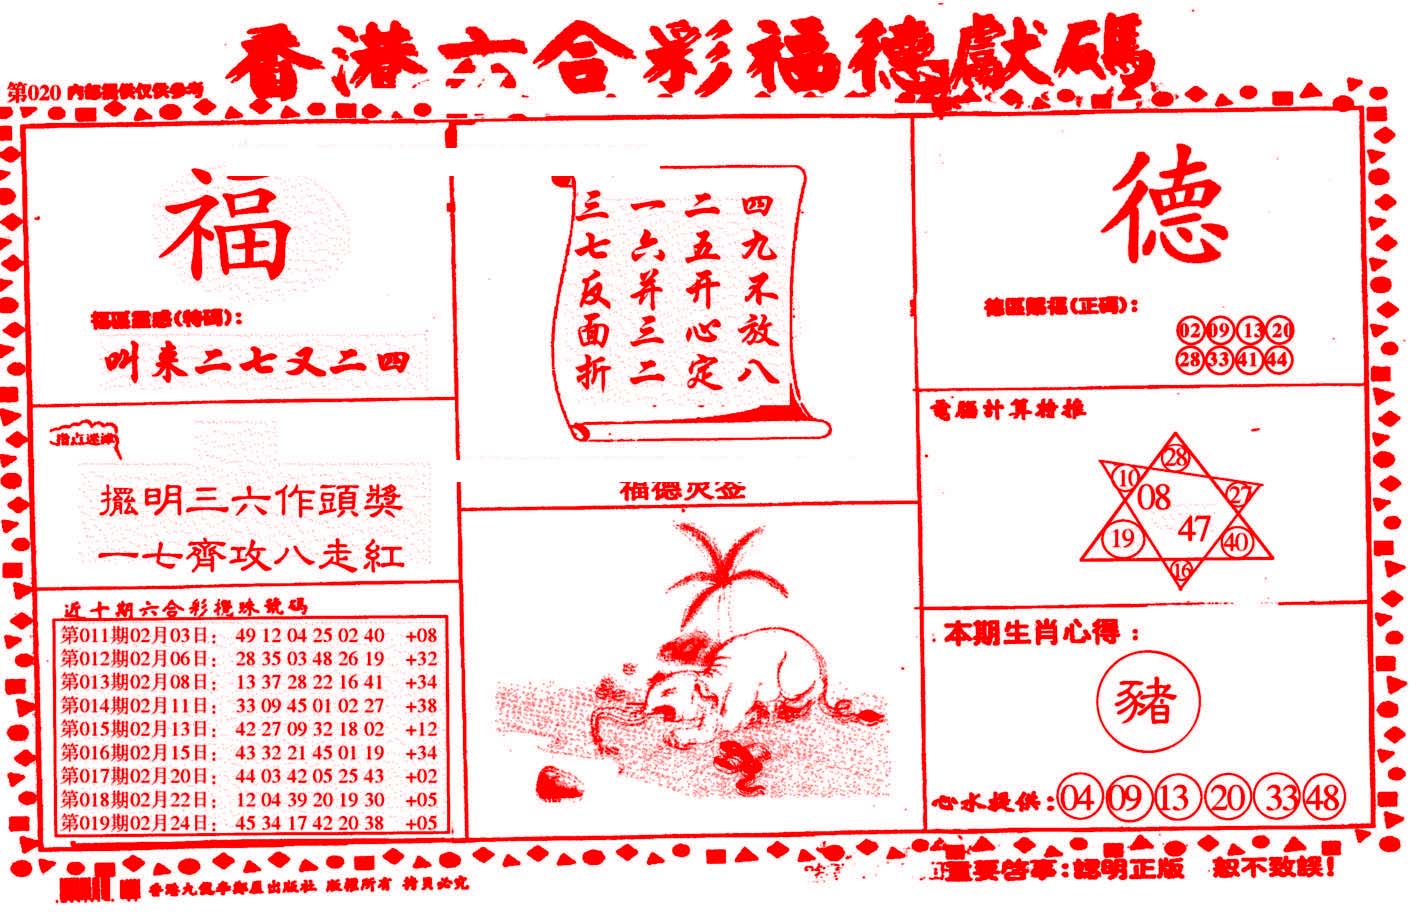 香港六合彩福德獻碼
第020 內部提供仅供參考
福
福區靈感(特碼):
叫来二七又二四
指点迷津
擺明三六作頭獎
一七齊攻八走紅
近十期六合彩攪珠號碼
第011期02月03日: 49 12 04 25 02 40 +08
第012期02月06日: 28 35 03 48 26 19 +32
第013期02月08日: 13 37 28 22 16 41 +34
第014期02月11日: 33 09 45 01 02 27 +38
第015期02月13日: 42 27 09 32 18 02 +12
第016期02月15日: 43 32 21 45 01 19 +34
第017期02月20日: 44 03 42 05 25 43 +02
第018期02月22日: 12 04 39 20 19 30 +05
第019期02月24日: 45 34 17 42 20 38 +05
四九不放八
二五开心定
一六并三二
三七反面折
福德灵签
德
德區賜福(正碼):
02 09 13 20
28 33 41 44
電腦計算特推
28
10
08
27
47
19
40
16
本期生肖心得:
豬
心水提供: 04 09 13 20 33 48
重要啓事:認明正版 恕不致誤!
出版社 版權所有 拷貝必究